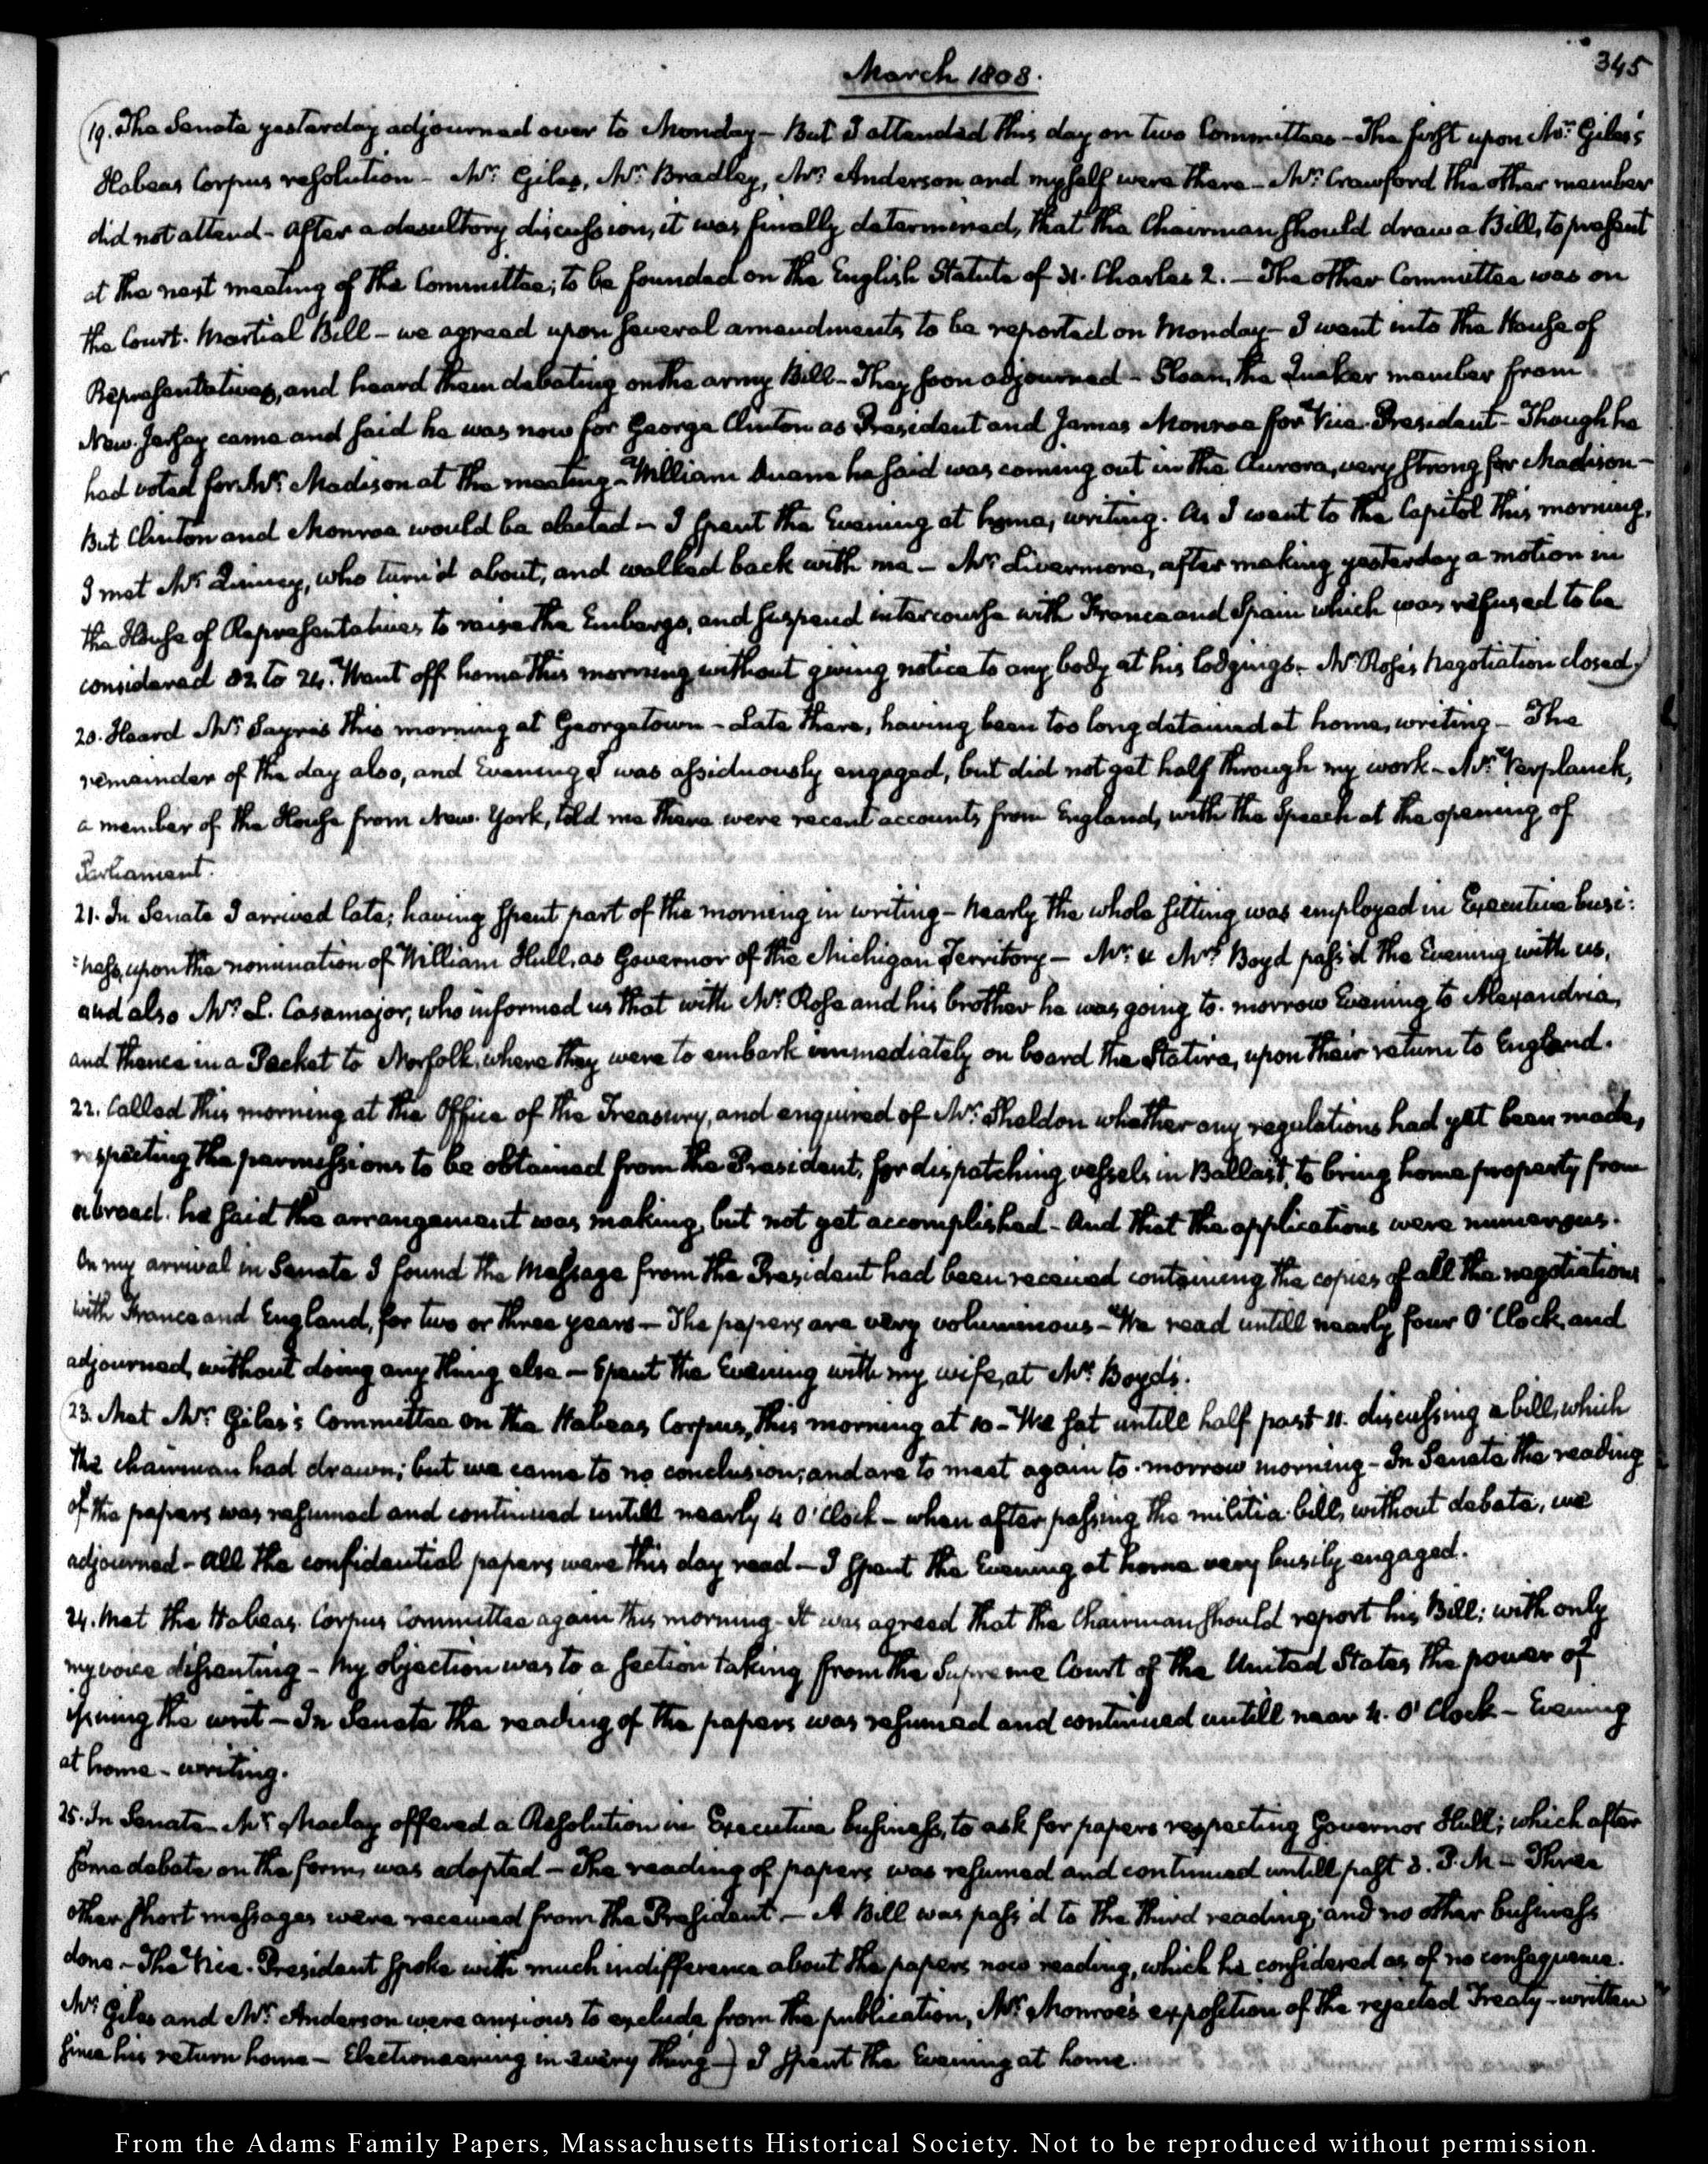 March 1808.
345
19. The Senate yesterday adjourned over to Monday - But I attended this day on two Committees - The first upon Mr: Giles's
Habeas Corpus resolution - Mr: Giles, Mr: Bradley, Mr: Anderson and myself were there - Mr: Crawford the other member
did not attend - After a desultory discussion, it was finally determined, that the Chairman should draw a Bill, to present
at the next meeting of the Committee; to be founded on the English Statute of 31. Charles 2. - The other Committee was on
the Court-Martial Bill - we agreed upon several amendments to be reported on Monday - I went into the House of
Representatives, and heard them debating on the army Bill - They soon adjourned - Sloan, the Quaker member from
New-Jersey came and said he was now for George Clinton as President and James Monroe for Vice-President - Though he
had voted for Mr: Madison at the meeting - William Duane he said was coming out in the Aurora, very strong for Madison -
But Clinton and Monroe would be elected - I spent the Evening at home, writing. As I went to the Capitol this morning,
I met Mr: Quincy, who turn'd about, and walked back with me - Mr: Livermore, after making yesterday a motion in
the House of Representatives to raise the Embargo, and suspend intercourse with France and Spain which was refused to be
considered 82 to 24. Went off home this morning without giving notice to any body at his lodgings - Mr: Rose's Negotiation closed)
20. Heard Mr: Sayrs this morning at Georgetown - Late there, having been too long detained at home, writing - The
remainder of the day also, and Evening I was assiduously engaged, but did not get half through my work - Mr: Verplanck,
a member of the House from New-York, told me there were recent accounts from England, with the Speech at the opening of
Parliament.
21. In Senate I arrived late; having spent part of the morning in writing - Nearly the whole sitting was employed in Executive busi:
:ness, upon the nomination of William Hull, as Governor of the Michigan Territory - Mr: & Mrs: Boyd pass'd the Evening with us,
and also Mr: L. Casamajor, who informed us that with Mr: Rose and his brother he was going to-morrow Evening to Alexandria,
and thence in a Packet to Norfolk, where they were to embark immediately on board the Statira, upon their return to England.
22. Called this morning at the Office of the Treasury, and enquired of Mr: Sheldon whether any regulations had yet been made,
respecting the permissions to be obtained from the President, for dispatching vessels in Ballast, to bring home property from
abroad. he said the arrangement was making, but not yet accomplished - And that the applications were numerous.
On my arrival in Senate I found the Message from the President had been received containing the copies of all the negotiations
with France and England, for two or three years - The papers are very voluminous - We read untill nearly four O'Clock, and
adjourned, without doing any thing else - Spent the Evening with my wife, at Mr: Boyd's.
23. Met Mr: Giles's Committee on the Habeas Corpus, this morning at 10 - We sat untill half past 11. discussing a bill, which
the chairman had drawn; but we came to no conclusion; and are to meet again to-morrow morning - In Senate the reading
of the papers was resumed and continued untill nearly 4 O'Clock - when after passing the militia-bill, without debate, we
adjourned - All the confidential papers were this day read - I spent the Evening at home very busily engaged.
24. Met the Habeas-Corpus Committee again this morning - It was agreed that the Chairman should report his Bill; with only
my voice dissenting - My objection was to a section taking from the Supreme Court of the United States the power of
issuing the writ - In Senate the reading of the papers was resumed and continued untill near 4. O'Clock - Evening
at home - writing.
25. In Senate - Mr: Maclay offered a Resolution in Executive business, to ask for papers respecting Governor Hull; which after
some debate on the form, was adopted - The reading of papers was resumed and continued untill past 3. P.M - Three
other short messages were received from the President - A Bill was pass'd to the third reading; and no other business
done - The Vice-President spoke with much indifference about the papers now reading, which he considered as of no consequence.
Mr: Giles and Mr: Anderson were anxious to exclude from the publication, Mr: Monroe's exposition of the rejected Treaty - written
since his return home - Electioneering in every thing -) I spent the Evening at home.
From the Adams Family Papers, Massachusetts Historical Society. Not to be reproduced without permission.